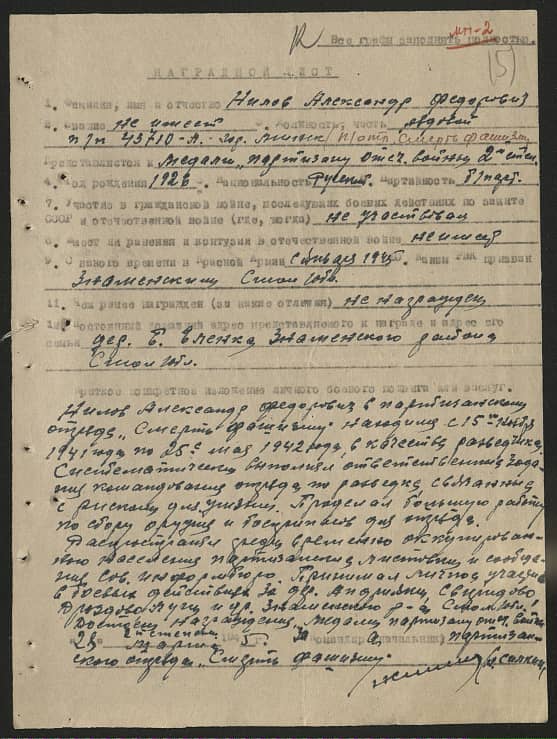 МП-2
Все графы заполнять полностью.
15
НАГРАДНОЙ ЛИСТ
1. Фамилия, имя и отчество Нилов Александр Федорович
2. Звание не имеет Должность, часть рядовой
п/я 43710-А- гор. Минск п/отр. Смерть фашизму
Представляется к медали "партизану отеч. войны 2й степ.
Год рождения 1926. Национальность Русский. Партийность б/парт.
7. Участие в гражданской войне, последующих боевых действиях по защите
СССР и отечественной войне (где, когда) не участвовал
8. Имеет ли ранения и контузии в отечественной войне не имеет
9. С какого времени в Красной Армии с января 1945 Каким РВК призван
Знаменским Смол обл.
11. Чем ранее награжден (за какие отличия) не награжден
Постоянный домашний адрес представляемого к награде и адрес его
семьи дер. Б. Еленка Знаменского района
Смол обл.
Краткое конкретное изложение личного боевого подвига или заслуг.
Нилов Александр Федорович в партизанском
отряде "Смерть фашизму" находился с 15го ноября
1941 года по 25е мая 1942 года, в качестве разведчика.
Систематически выполнял ответственные зада-
ния командования отряда по разведке связанные
с риском для жизни. Проделал большую работу
по сбору оружия и боеприпасов для отряда.
Распространял среди временно оккупирован-
ного населения партизанские листовки и сообще-
ния Сов. информбюро. Принимал личное участие
в боевых действиях за дер. Андрияки, Свиридово
Дроздово, Лучи и др. Знаменского р-а Смол обл.
Достоин награждения медалью партизану отеч. войны
2й степени
28 марта 194 г. Командир (начальник) партизан-
ского отряда "Смерть фашизму"